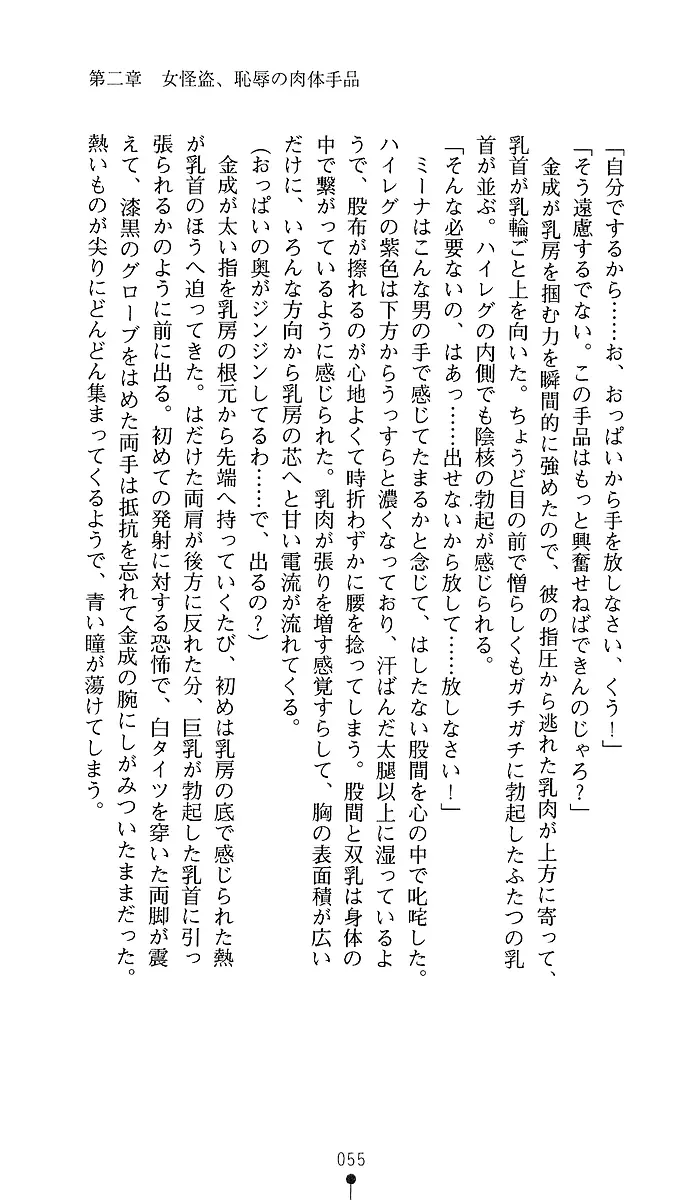 第二章　女怪盗、恥辱の肉体手品
「自分でするから……お、おっぱいから手を放しなさい、くう！」
「そう遠慮するでない。この手品はもっと興奮せねばできんのじゃろ？」
　金成が乳房を掴む力を瞬間的に強めたので、彼の指圧から逃れた乳肉が上方に寄って、
乳首が乳輪ごと上を向いた。ちょうど目の前で憎らしくもガチガチに勃起したふたつの乳
首が並ぶ。ハイレグの内側でも陰核の勃起が感じられる。
「そんな必要ないの、はあっ……出せないから放して……放しなさい！」
　ミーナはこんな男の手で感じてたまるかと念じて、はしたない股間を心の中で叱咤した。
ハイレグの紫色は下方からうっすらと濃くなっており、汗ばんだ太腿以上に湿っているよ
うで、股布が擦れるのが心地よくて時折わずかに腰を捻ってしまう。股間と双乳は身体の
中で繋がっているように感じられた。乳肉が張りを増す感覚すらして、胸の表面積が広い
だけに、いろんな方向から乳房の芯へと甘い電流が流れてくる。
（おっぱいの奥がジンジンしてるわ……で、出るの？）
　金成が太い指を乳房の根元から先端へ持っていくたび、初めは乳房の底で感じられた熱
が乳首のほうへ迫ってきた。はだけた両肩が後方に反れた分、巨乳が勃起した乳首に引っ
張られるかのように前に出る。初めての発射に対する恐怖で、白タイツを穿いた両脚が震
えて、漆黒のグローブをはめた両手は抵抗を忘れて金成の腕にしがみついたままだった。
熱いものが尖りにどんどん集まってくるようで、青い瞳が蕩けてしまう。
055